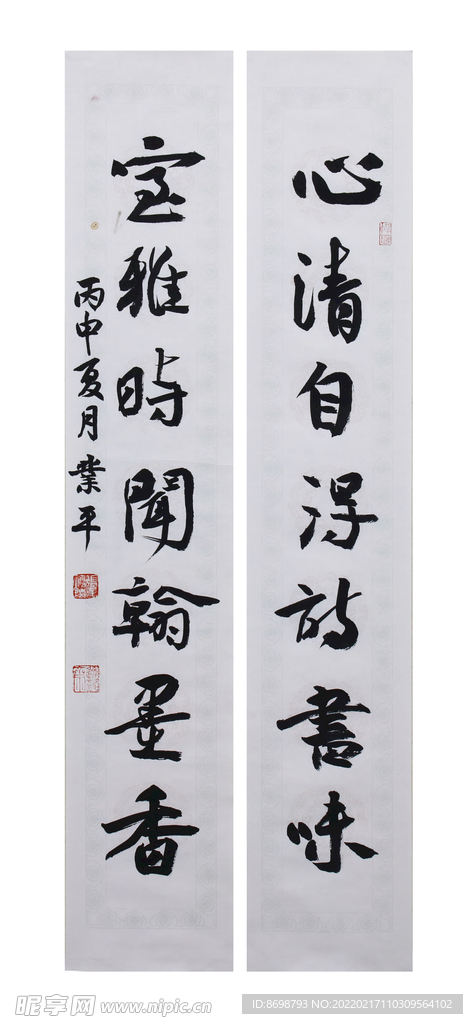 心清自得詩書味
室雅時聞翰墨香
丙申夏月業平
昵享网 www.nipic.cn
ID:8698793 NO:20220217110309564102